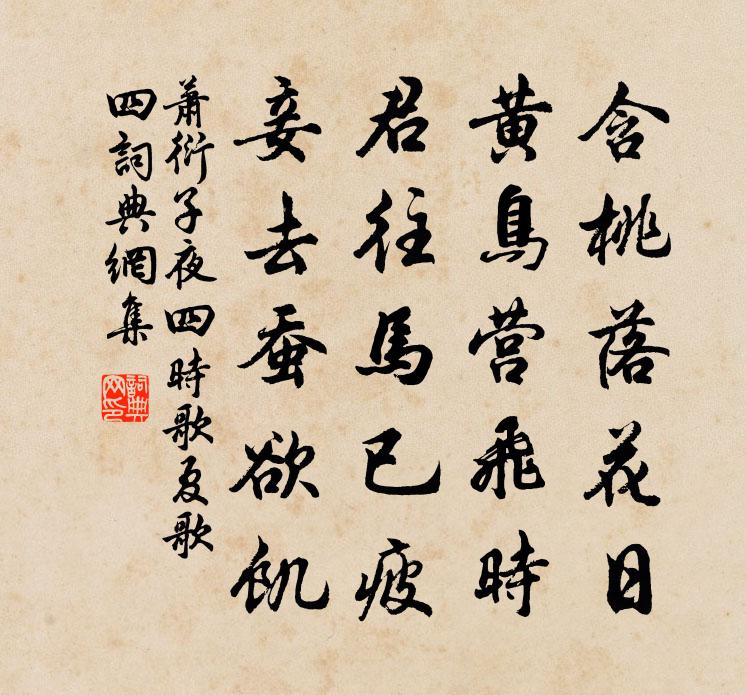 含桃落花日
黄鳥营飛時
君往馬已疲
妾去蚕欲飢
蕭衍子夜四時歌夏歌
四詞典網集
詞典网印